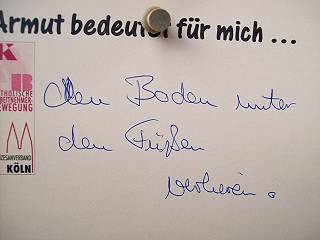 Armut bedeutet für mich ...
K
B
THOLISCHE
BEITNEHMER-
EWEGUNG
ZESANVERBAND
KÖLN
den Boden unter
den Füßen
verlieren.